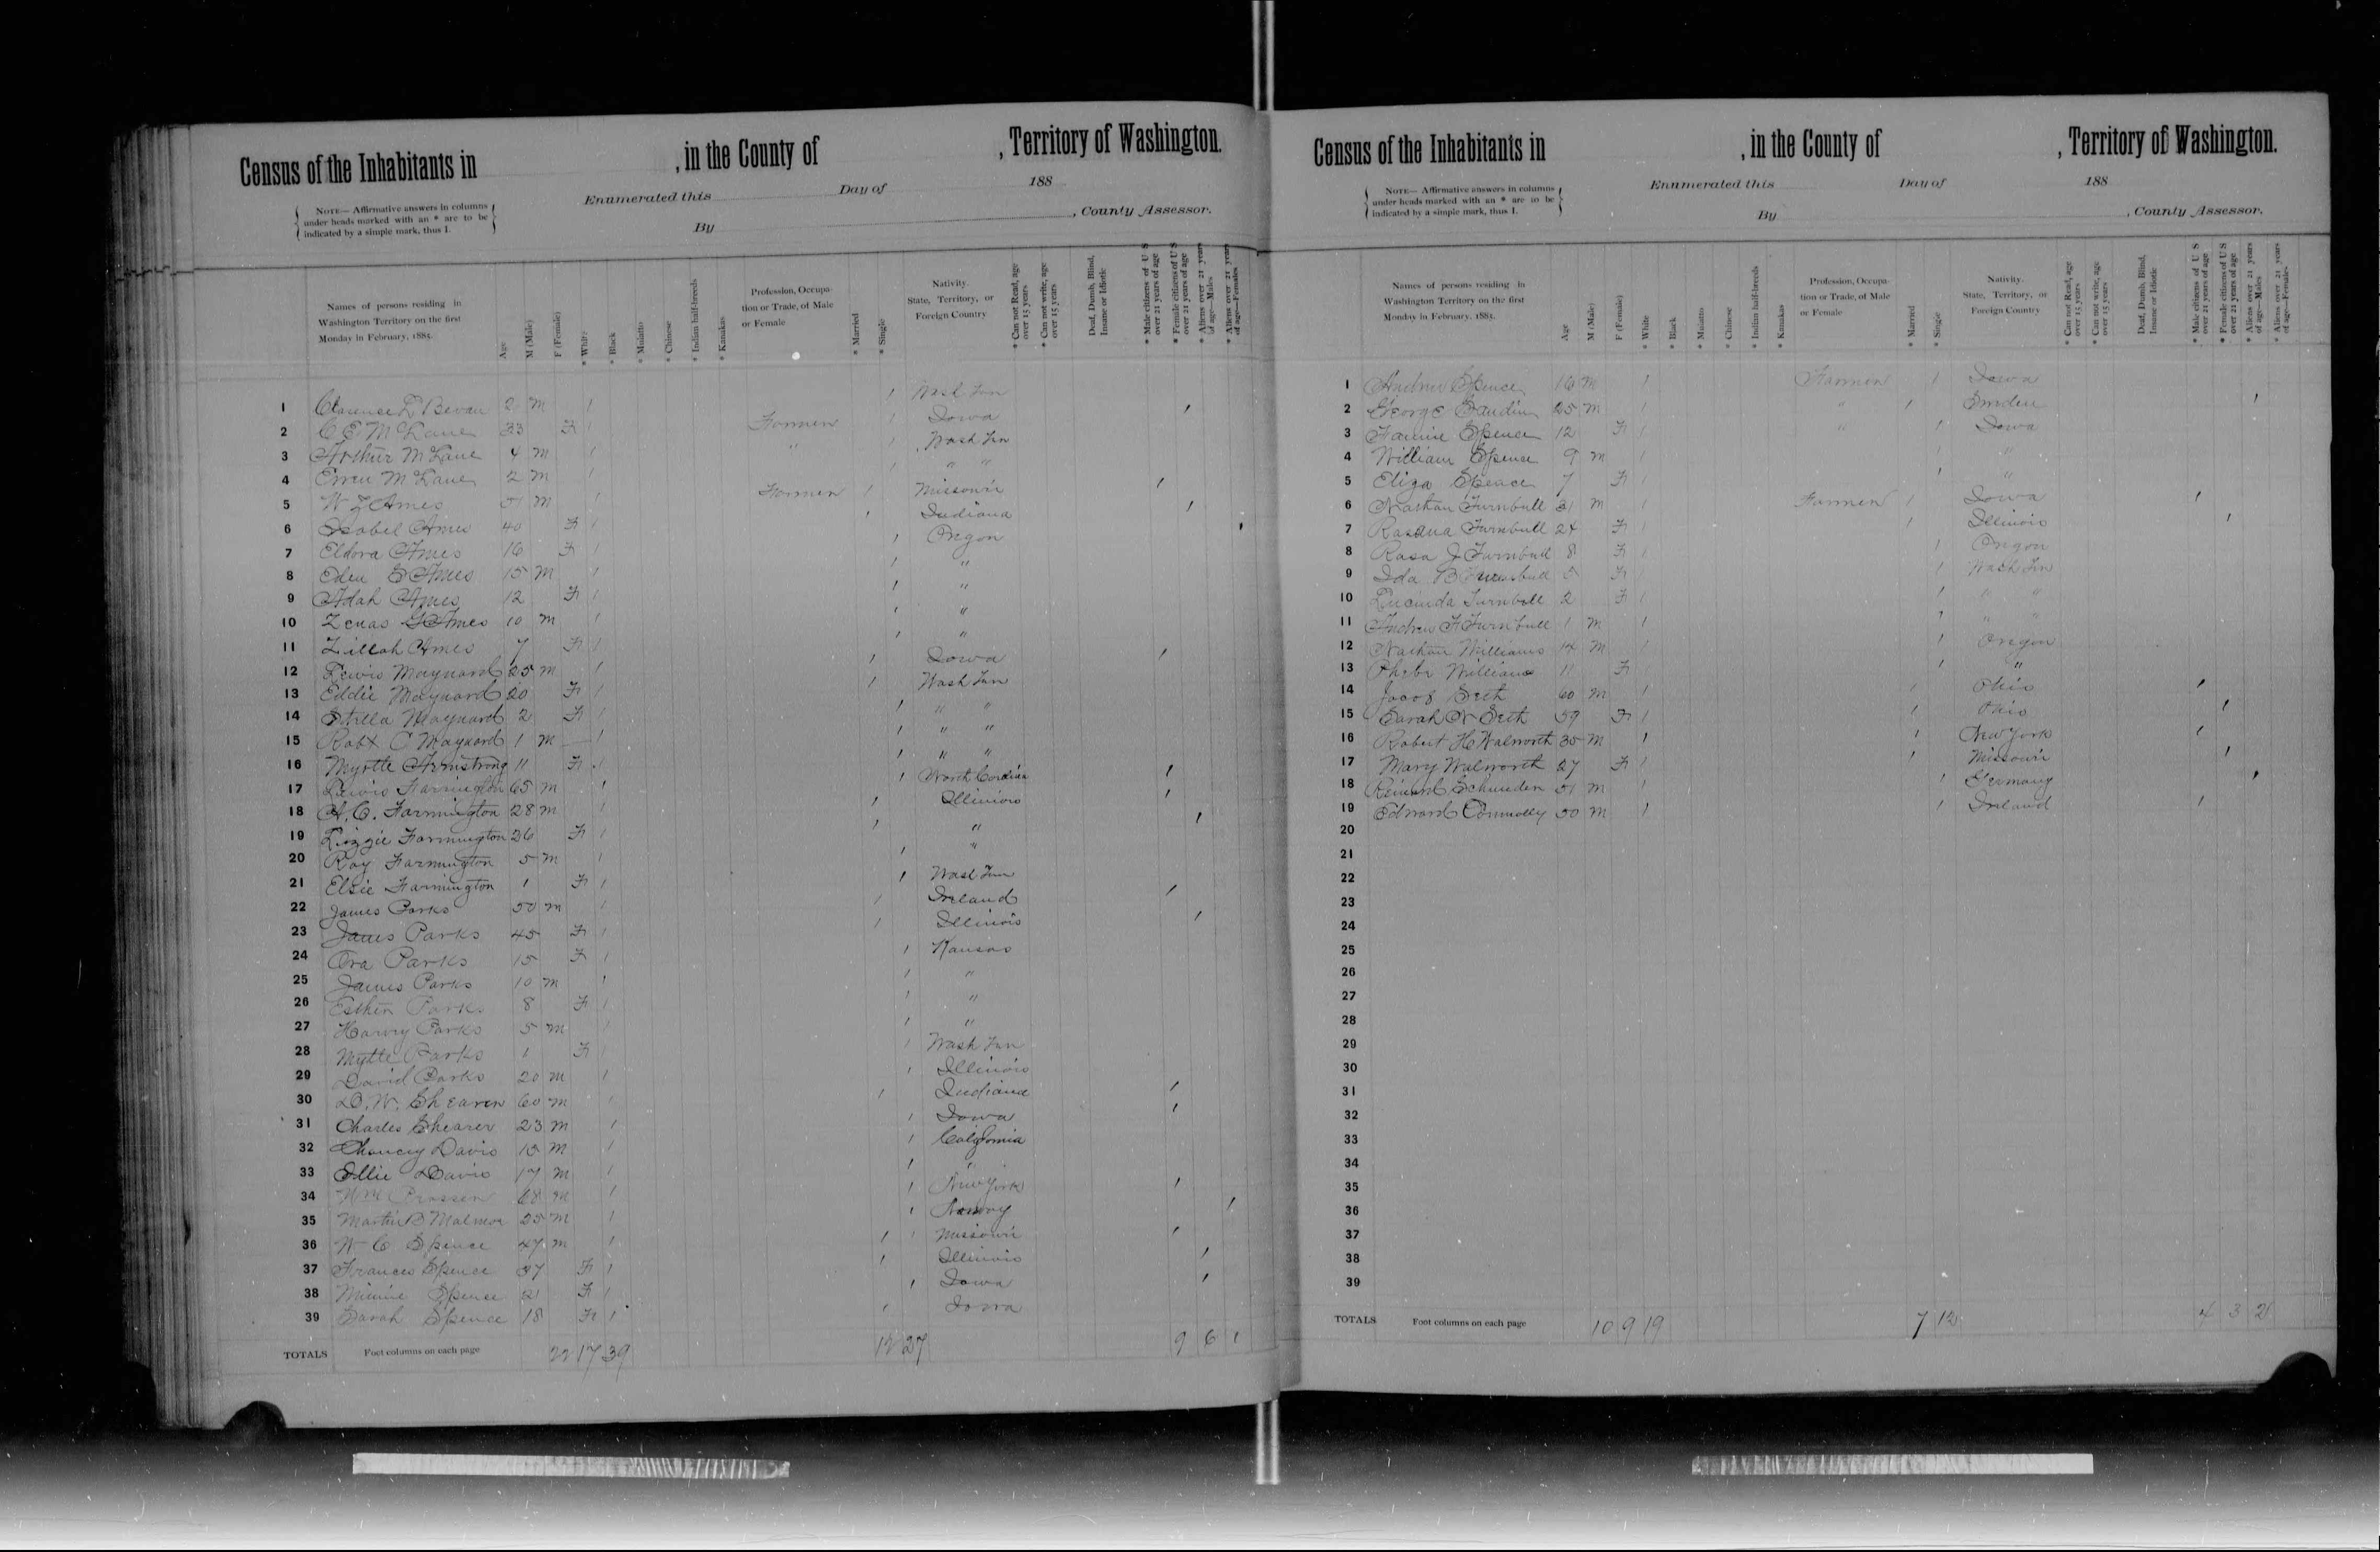 Census of the Inhabitants in , in the County of , Territory of Washington.
Enumerated this Day of 188
NOTE— Affirmative answers in columns
under heads marked with an * are to be
indicated by a simple mark, thus 1.
By , County Assessor.
Names of persons residing in Washington Territory on the first Monday in February, 1885. Age M (Male) F (Female) * White * Black * Mulatto * Chinese * Indian half-breeds * Kanakas Profession, Occupation or Trade, of Male or Female * Married * Single Nativity. State, Territory, or Foreign Country * Can not Read, age over 15 years * Can not write, age over 15 years Deaf, Dumb, Blind, Insane or Idiotic * Male citizens of U S over 21 years of age * Female citizens of U S over 21 years of age * Aliens over 21 years of age—Males * Aliens over 21 years of age—Females
1 Clarence L Bevan 2 M 1 1
2 C E McLane 33 F 1 Farmer 1 Iowa 1
3 Arthur McLane 4 M 1 " 1 Wash Ter
4 McLane 2 M 1 1 " "
5 W Z Ames 51 M 1 Farmer 1 Missouri 1
6 Isabel Ames 40 F 1 1 Indiana 1
7 Eldora Ames 16 F 1 1 Oregon
8 Eden Ames 15 M 1 1 "
9 Adah Ames 12 F 1 1 "
10 Zenas G Ames 10 M 1 1 "
11 Zillah Ames 7 F 1 1 "
12 Lewis Maynard 25 M 1 1 Iowa 1
13 Eddie Maynard 20 F 1 1 Wash Ter
14 Stella Maynard 2 F 1 1 " "
15 Robt C Maynard 1 M 1 1 " "
16 Myrtle Armstrong 11 F 1 1 " "
17 Lewis Farmington 65 M 1 1 North Carolina 1
18 A. C. Farmington 28 M 1 1 Illinois 1
19 Lizzie Farmington 26 F 1 1 " 1
20 Roy Farmington 5 M 1 1 "
21 Elsie Farmington 1 F 1 1 Wash Ter
22 James Parks 50 M 1 1 Ireland 1
23 Parks 45 F 1 1 Illinois 1
24 Ora Parks 15 F 1 1 Kansas
25 James Parks 10 M 1 1 "
26 Esther Parks 8 F 1 1 "
27 Harvey Parks 5 M 1 1 "
28 Mytle Parks 1 F 1 1 Wash Ter
29 David Parks 20 M 1 1 Illinois
30 D. W. Shearer 60 M 1 1 Indiana 1
31 Charles Shearer 23 M 1 1 Iowa 1
32 Chancy Davis 15 M 1 1 California
33 Ollie Davis 17 M 1 1 "
34 Wm 68 M 1 1 New York 1
35 Martin B 25 M 1 1 Norway 1
36 W C Spence 47 M 1 1 Missouri 1
37 Frances Spence 37 F 1 1 Illinois 1
38 Minnie Spence 21 F 1 1 Iowa 1
39 Sarah Spence 18 F 1 1 Iowa
TOTALS Foot columns on each page 22 17 39 12 27 9 6 1
Census of the Inhabitants in , in the County of , Territory of Washington.
Enumerated this Day of 188
NOTE— Affirmative answers in columns
under heads marked with an * are to be
indicated by a simple mark, thus 1.
By , County Assessor.
Names of persons residing in Washington Territory on the first Monday in February, 1885. Age M (Male) F (Female) * White * Black * Mulatto * Chinese * Indian half-breeds * Kanakas Profession, Occupation or Trade, of Male or Female * Married * Single Nativity. State, Territory, or Foreign Country * Can not Read, age over 15 years * Can not write, age over 15 years Deaf, Dumb, Blind, Insane or Idiotic * Male citizens of U S over 21 years of age * Female citizens of U S over 21 years of age * Aliens over 21 years of age—Males * Aliens over 21 years of age—Females
1 Spence 16 M 1 Farmer 1 Iowa
2 George 25 M 1 " 1 Sweden 1
3 Fannie Spence 12 F 1 " 1 Iowa
4 William Spence 9 M 1 1 "
5 Eliza Spence 7 F 1 1 "
6 Nathan Turnbull 31 M 1 Farmer 1 Iowa 1
7 Turnbull 24 F 1 1 Illinois 1
8 Rosa J Turnbull 8 F 1 1 Oregon
9 Ida B Turnbull 5 F 1 1 Wash Ter
10 Lucinda Turnbull 2 F 1 1 " "
11 Andrew F Turnbull 1 M 1 1 " "
12 Nathan Williams 14 M 1 1 Oregon
13 Pheba Williams 11 F 1 1 "
14 Jacob 60 M 1 1 Ohio 1
15 Sarah N 59 F 1 1 Ohio 1
16 Robert H Walworth 35 M 1 1 New York 1
17 Mary Walworth 27 F 1 1 Missouri 1
18 51 M 1 1 Germany 1
19 Edward Connolly 50 M 1 1 Ireland 1
20
21
22
23
24
25
26
27
28
29
30
31
32
33
34
35
36
37
38
39
TOTALS Foot columns on each page 10 9 19 7 12 4 3 2